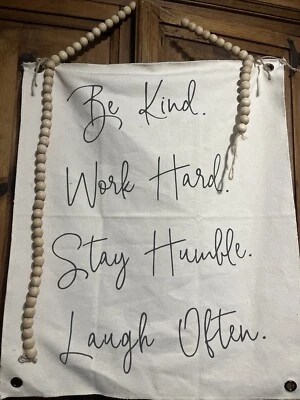 Be Kind.
Work Hard.
Stay Humble.
Laugh Often.